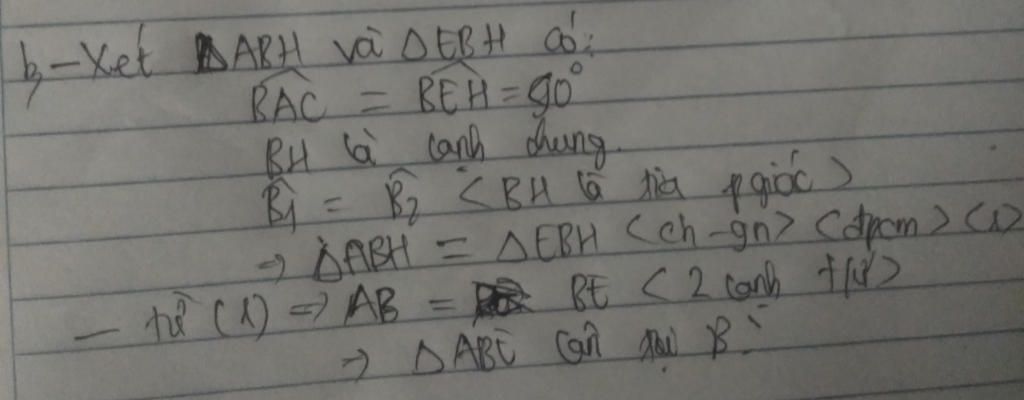 b, - Xét ΔABH và ΔEBH có:
BAC = BEH = 90°
BH là cạnh chung.
B1 = B2 < BH là tia p giác >
→ ΔABH = ΔEBH <ch-gn> <đpcm> (1)
- từ (1) => AB = BE < 2 cạnh t/ư >
→ ΔABE cân tại B.